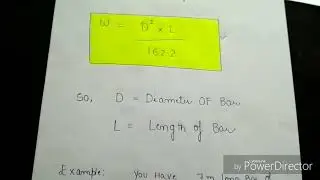 W = D² × L
162.2
So, D = Diameter OF Bar
L = Length of Bar
Example: You Have 7m long Bar of
by PowerDirector